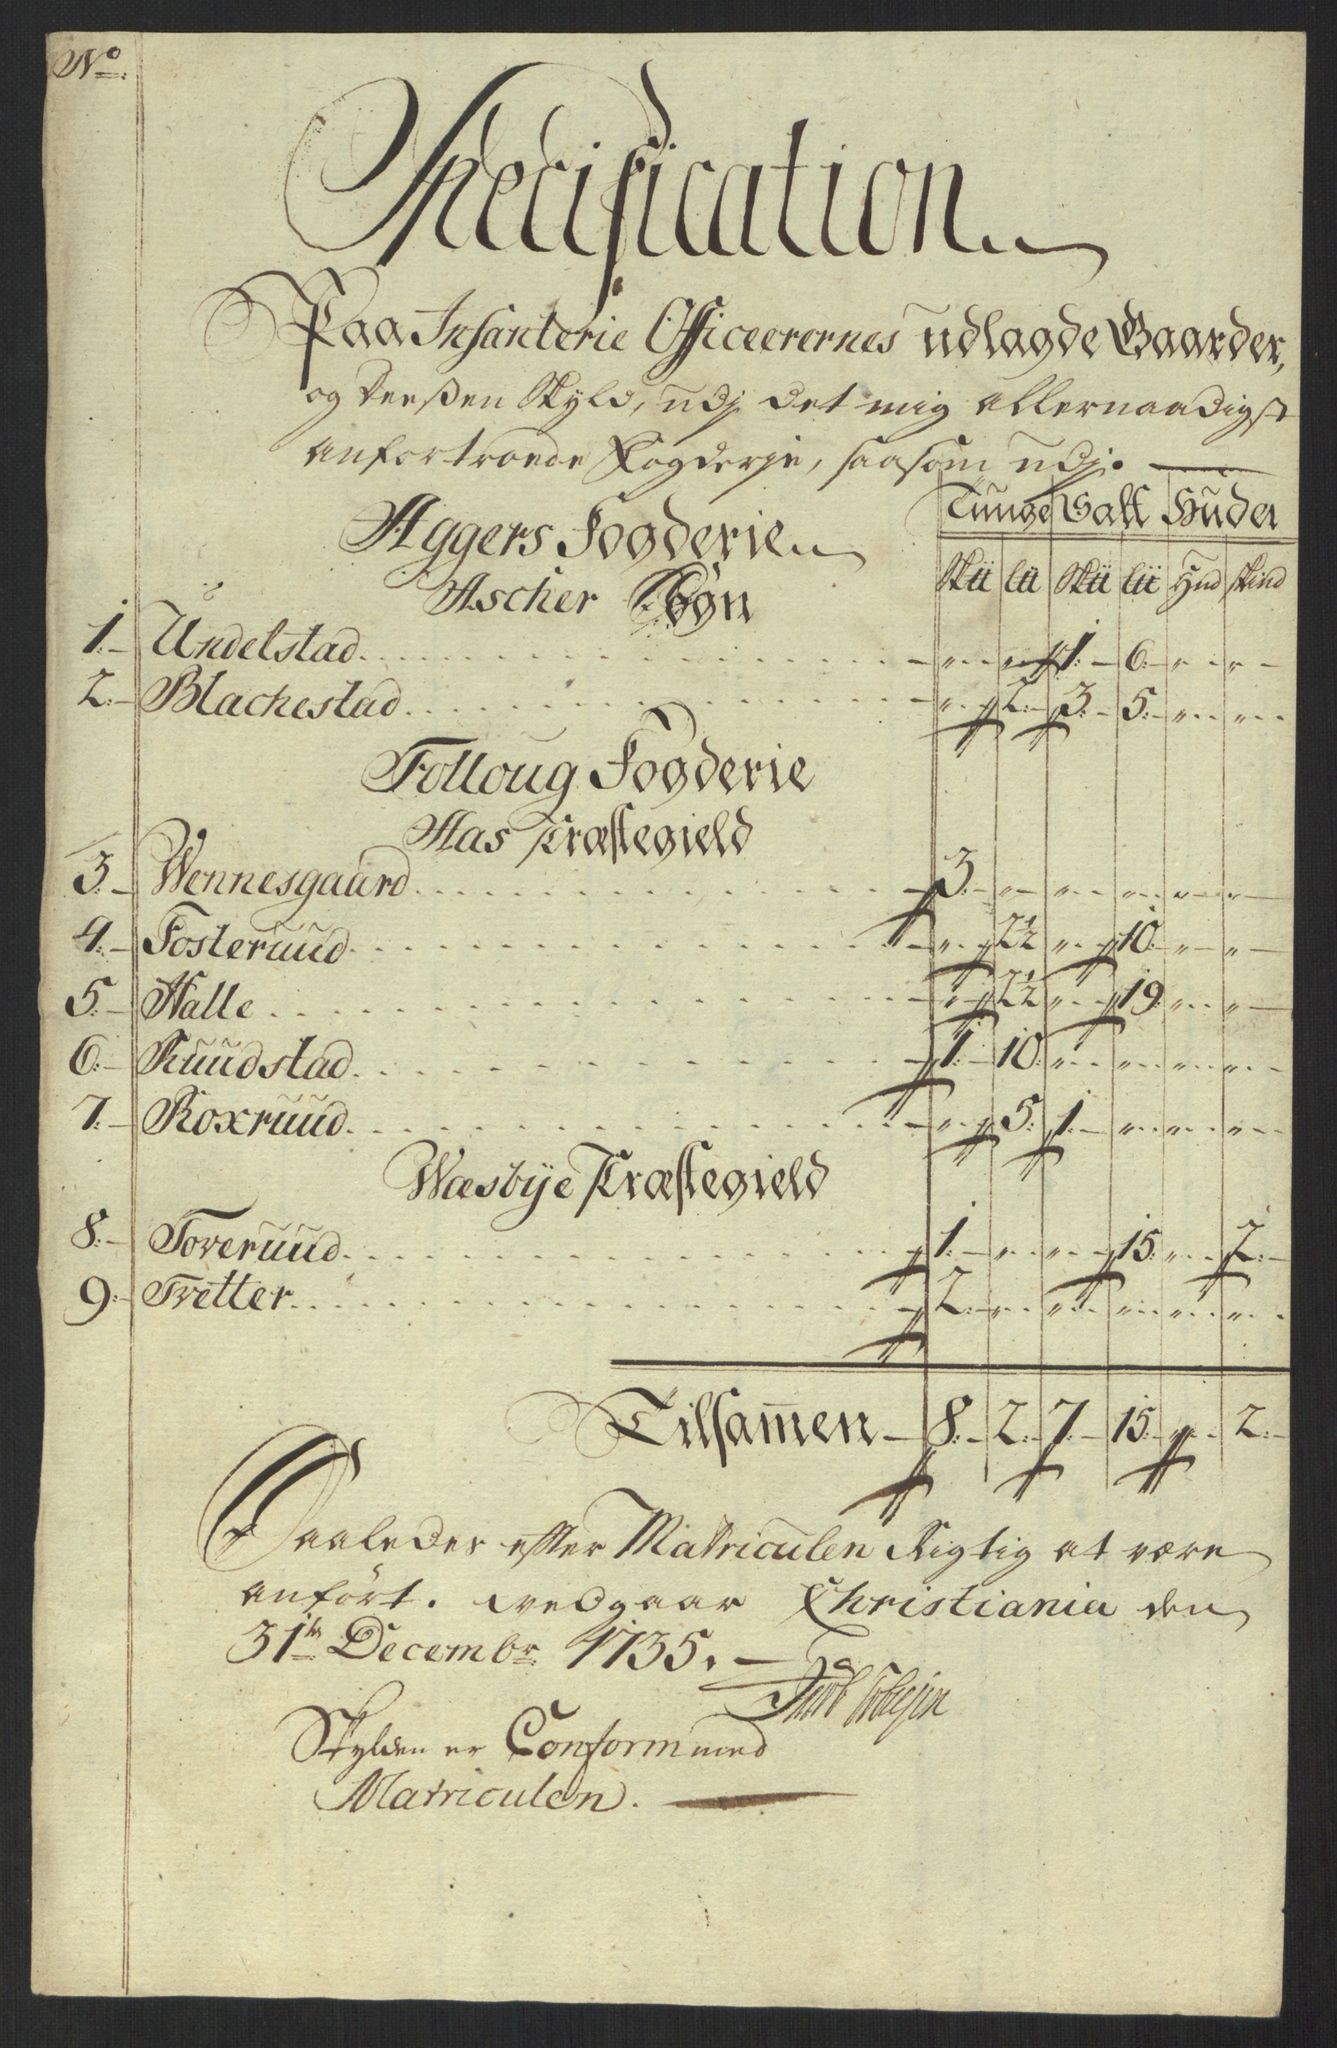 No.
Specification
Paa Infanterie Officeerernes udlagde Gaarder,
og deresßen Skyld, udj det mig allernaadigst
anfortroede Fogderje, saasom udj.
Tunge Salt Huder
Aggers Fogderie
Sk℔ l℔ Sk℔ l℔ Hud skind
Ascher Sogn
1. Undelstad 1. 6.
2. Blachestad 2. 3. 5.
Folloug Fogderie
Aas Præstegield
3. Wennesgaard 3.
4. Fosteruud 2½ 10.
5. Halle 2½ 19.
6. Ruudstad 1. 10.
7. Roxruud 5. 1.
Wæsbye Præstegield
8. Toveruud 1. 15. 2.
9. Tvetter 2.
Tilsam̅en 8. 2. 7. 15. 2.
Saaledes efter Matriculen Rigtig at være
anført. vedgaar Christiania den
31te Decembr 1735.
Skylden er Conform med
Matriculen.